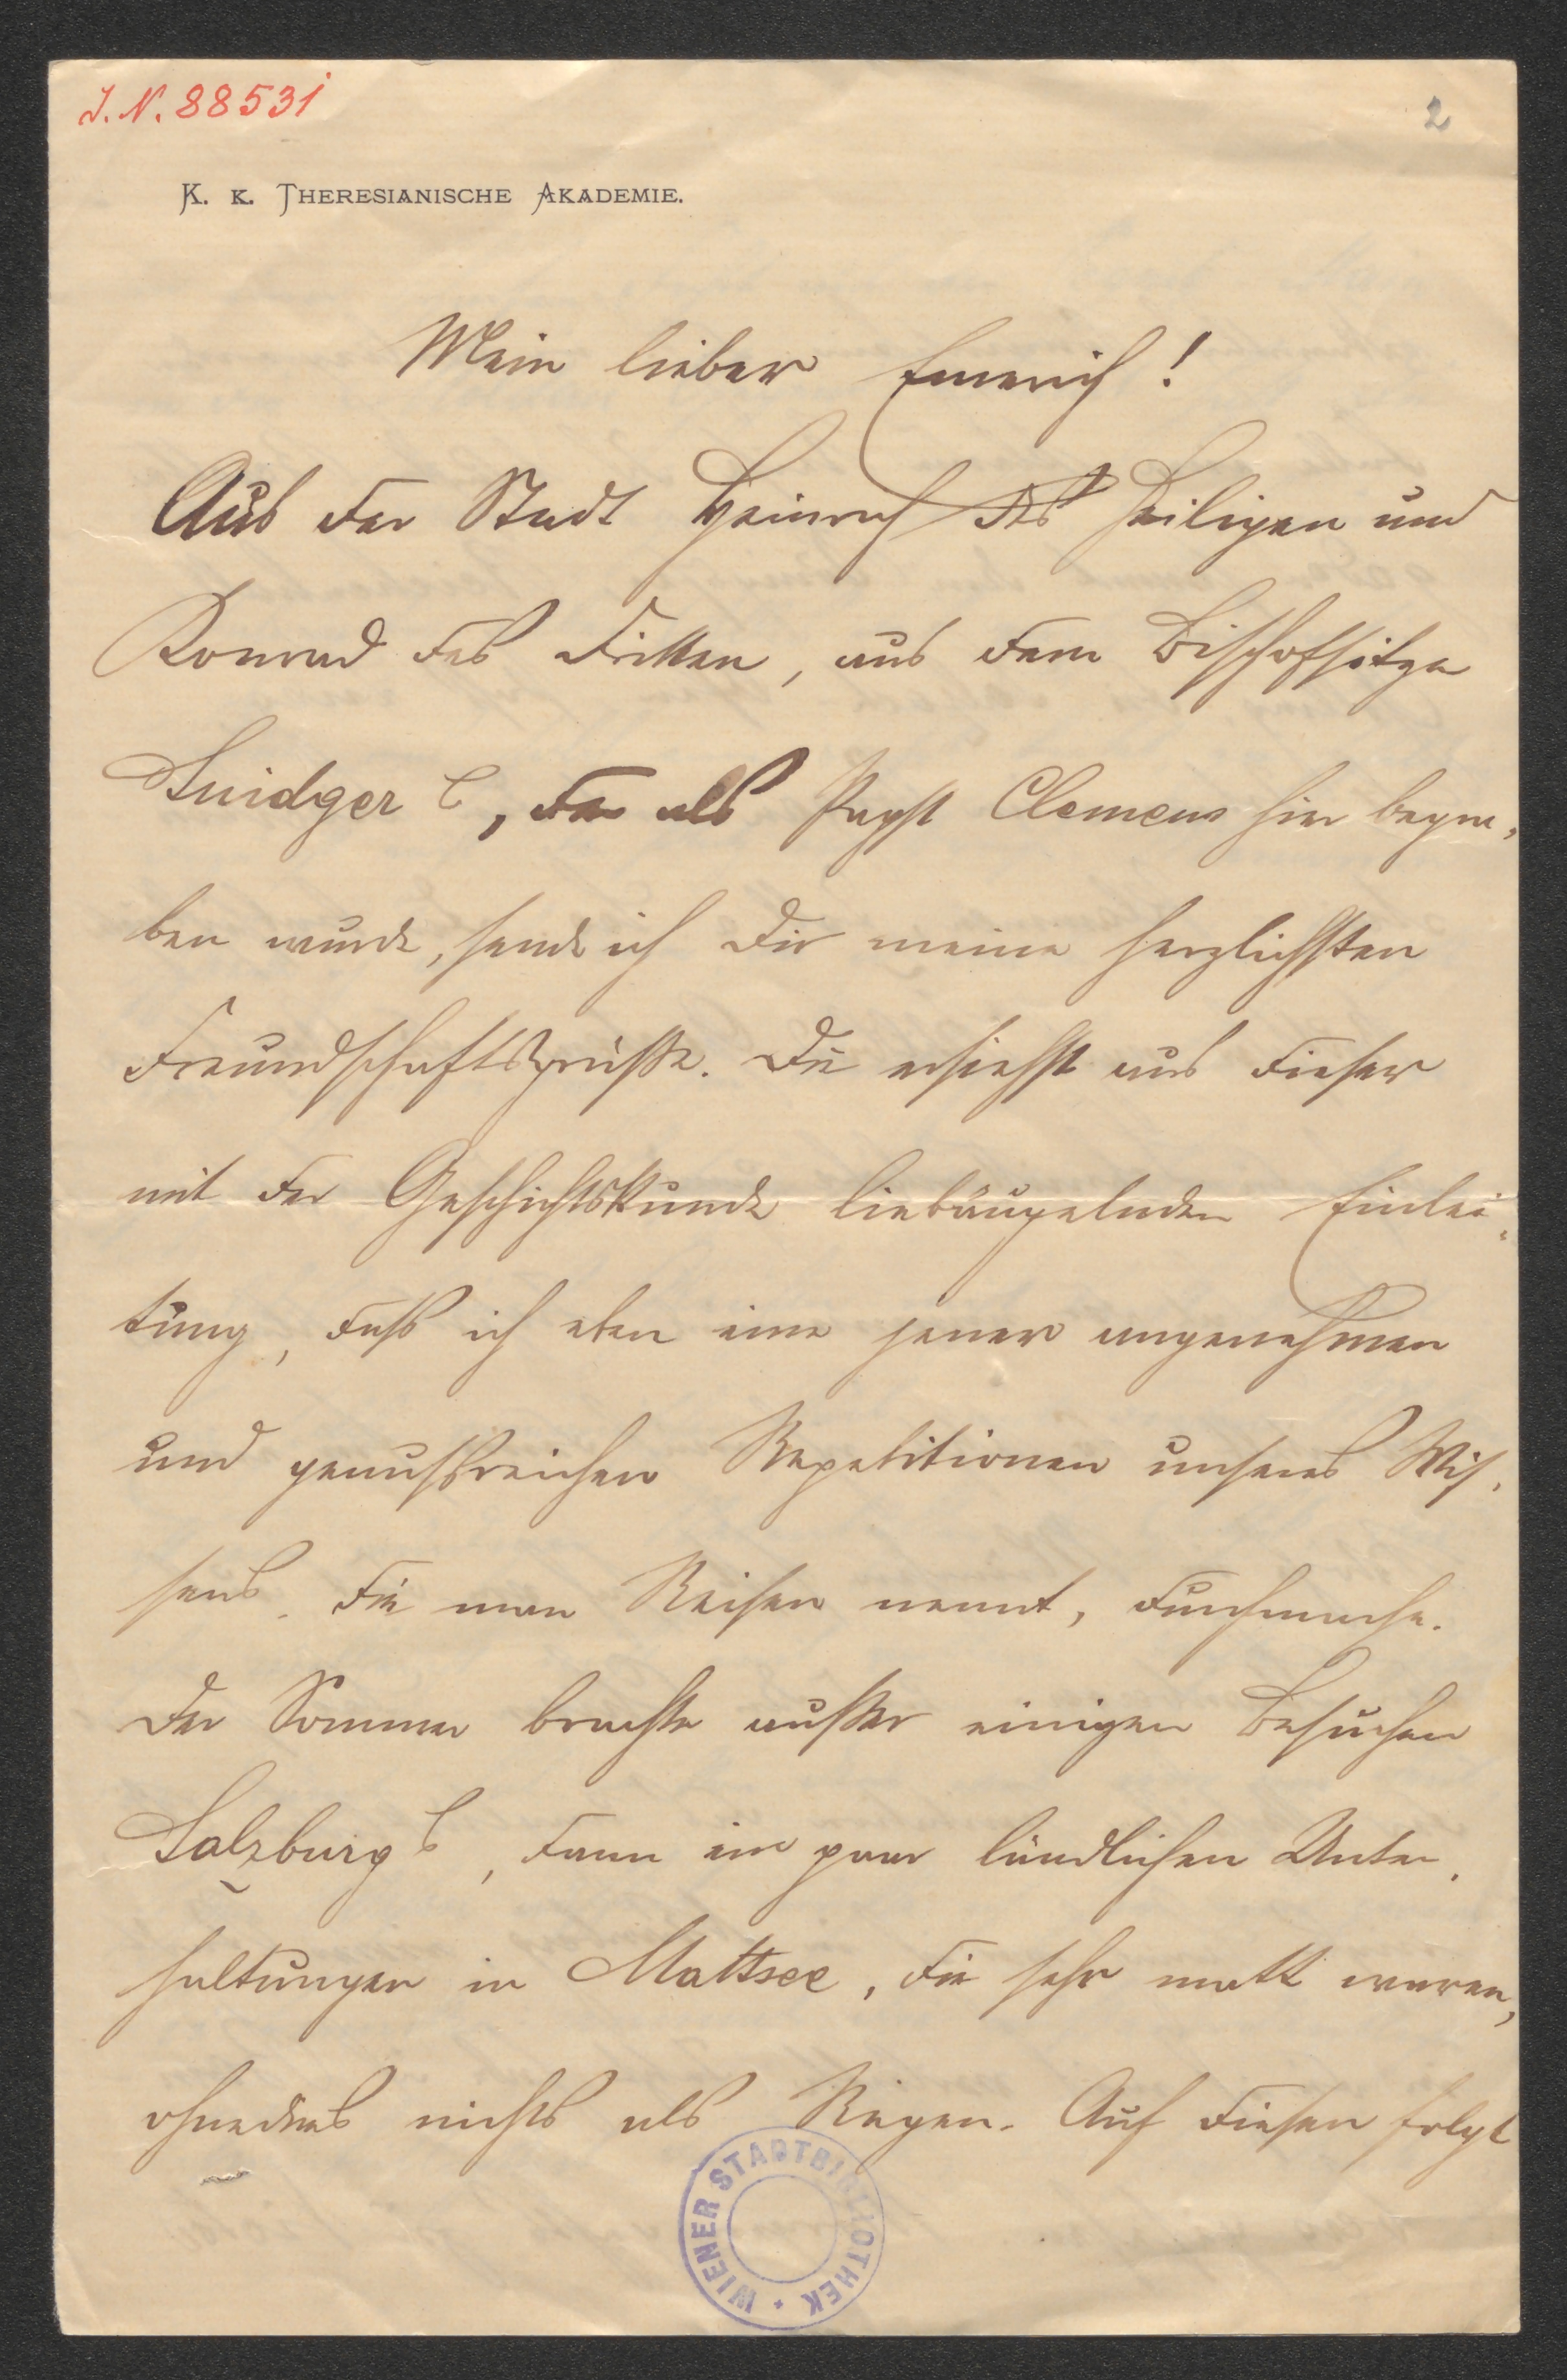 J. N. 88531
2
K. K. THERESIANISCHE AKADEMIE.
Mein lieber Emerich!
Aus der Stadt Heinrich des Heiligen und
Konrad des Dritten, aus dem Bischofsitze
Suidger's, der als Papst Clemens hier begra-
ben wurde, sende ich Dir meine herzlichsten
Freundschaftsgrüße. Du ersiehst aus dieser
mit der Geschichtskunde liebäugelnden Einlei-
tung, daß ich eben eine jener angenehmen
und genußreichen Repetitionen unseres Wis-
sens, die man Reisen nennt, durchmache.
Der Sommer brachte außer einigen Besuchen
Salzburg's, dann ein paar ländlichen Unter-
haltungen in Mattsee, die sehr matt waren,
ohnedies nichts als Regen. Auf diesen folgt
WIENER STADTBIBLIOTHEK